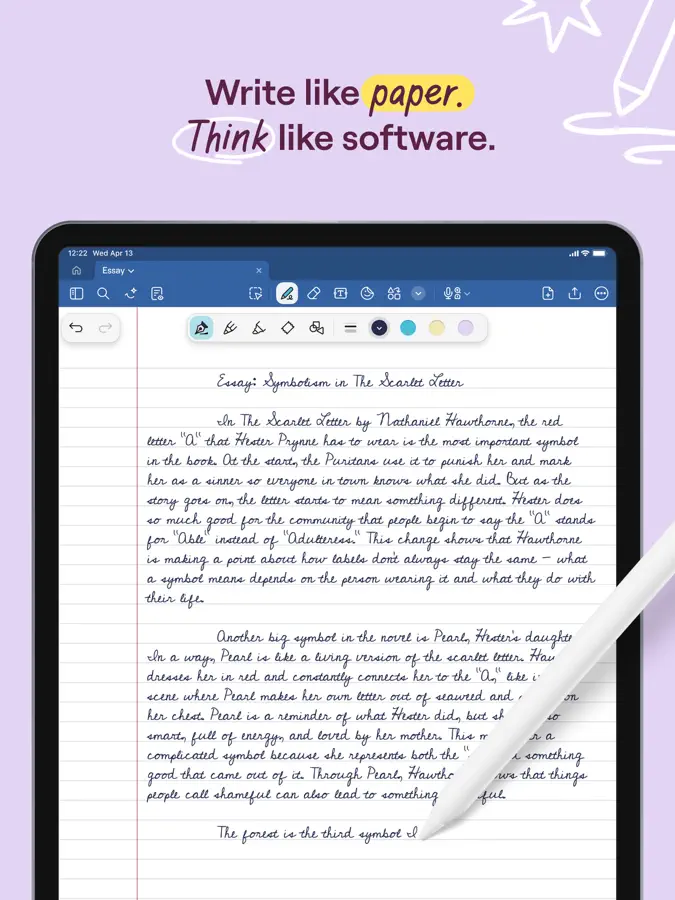 Write like paper.
Think like software.
12:22 Wed Apr 13
Essay
Essay: Symbolism in The Scarlet Letter
In The Scarlet Letter by Nathaniel Hawthorne, the red
letter "A" that Hester Prynne has to wear is the most important symbol
in the book. At the start, the Puritans use it to punish her and mark
her as a sinner so everyone in town knows what she did. But as the
story goes on, the letter starts to mean something different. Hester does
so much good for the community that people begin to say the "A" stands
for "Able" instead of "Adulteress." This change shows that Hawthorne
is making a point about how labels don't always stay the same – what
a symbol means depends on the person wearing it and what they do with
their life.
Another big symbol in the novel is Pearl, Hester's
In a way, Pearl is like a living version of the scarlet letter.
dresses her in red and constantly connects her to the "A," like
scene where Pearl makes her own letter out of seaweed and
her chest. Pearl is a reminder of what Hester did, but
smart, full of energy, and loved by her mother. This a
complicated symbol because she represents both the something
good that came out of it. Through Pearl, that things
people call shameful can also lead to something
The forest is the third symbol I